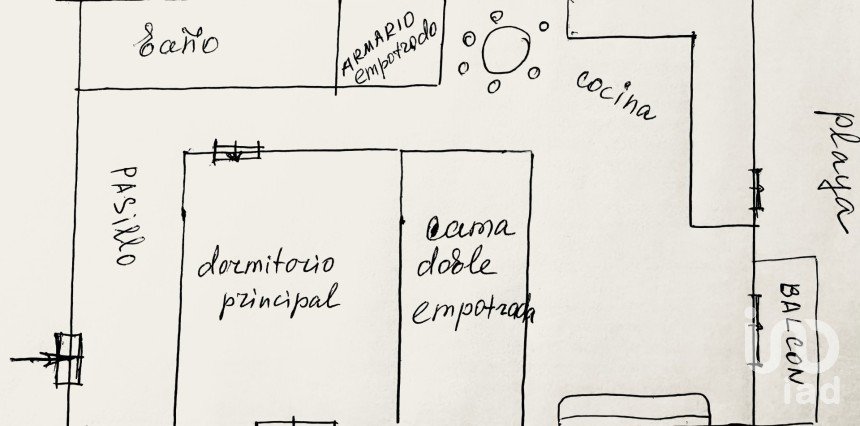 Baño
ARMARIO
empotrado
cocina
playa
PASillo
dormitorio
principal
cama
doble
empotrada
BALCON
iad